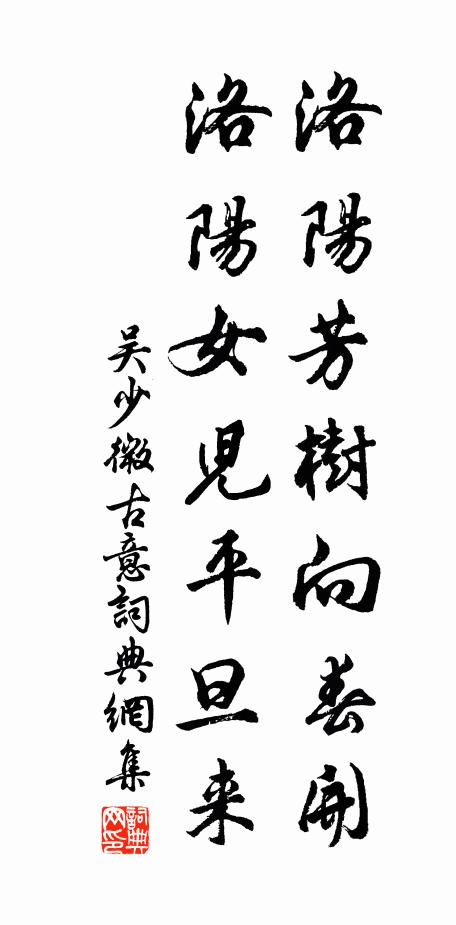 洛陽芳樹向春開
洛陽女兒平旦来
吴少微古意詞典網集
詞典网印